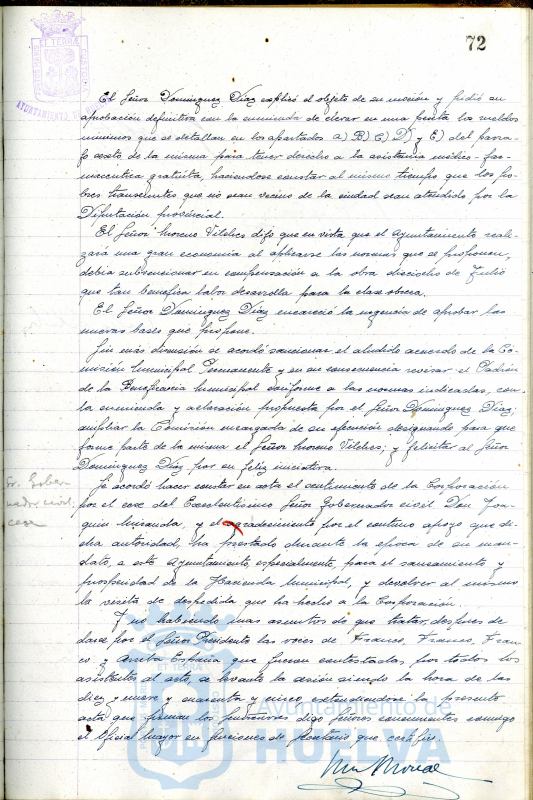 72
El Señor Dominguez Diaz explicó el objeto de su moción y pidió su
aprobación definitiva con la enmienda de elevar en una peseta los sueldos
minimos que se detallan en los apartados a) B) C) D) y E) del parra-
fo sexto de la misma para tener derecho a la asistencia médico-far-
maceutica gratuita, haciendose constar al mismo tiempo que los po-
bres transeuntes que no sean vecinos de la ciudad sean atendido por la
Diputación provincial.
El Señor Moreno Vilches dijo que en vista que el Ayuntamiento reali-
zará una gran economia al aplicarse las normas que se proponen,
debia subvencionar en compensación a la obra dieciocho de Julio
que tan benefica labor desarrolla para la clase obrera.
El Señor Dominguez Diaz encareció la urgencia de aprobar las
nuevas bases que propone.
Sin más discusión se acordó sancionar el aludido acuerdo de la Co-
misión Municipal Permanente y en su consecuencia revisar el Padrón
de la Beneficencia Municipal conforme a las normas indicadas, con
la enmienda y aclaración propuesta por el Señor Dominguez Diaz;
ampliar la Comisión encargada de su ejecución designando para que
forme parte de la misma el Señor Moreno Vilches; y felicitar al Señor
Dominguez Diaz por su feliz iniciativa.
Sr. Gober-
nador civil,
cese
Se acordó hacer constar en acta el sentimiento de la Corporación
por el cese del Excelentisimo Señor Gobernador civil Don Joa-
quin Miranda, y el agradecimiento por el continuo apoyo que di-
cha autoridad, ha prestado durante la epoca de su man-
dato, a este Ayuntamiento, especialmente, para el saneamiento y
prosperidad de la Hacienda Municipal, y devolver al mismo
la visita de despedida que ha hecho a la Corporación.
Y no habiendo mas asuntos de que tratar, despues de
darse por el Señor Presidente las voces de Franco, Franco, Fran-
co y Arriba España que fueron contestadas por todos los
asistentes al acto, se levantó la sesión siendo la hora de las
diez y nueve y cuarenta y cinco, extendiendose la presente
acta que firman los señores digo Señores concurrentes conmigo
el Oficial Mayor en funciones de Secretario que certifico.
Ayuntamiento de
HUELVA